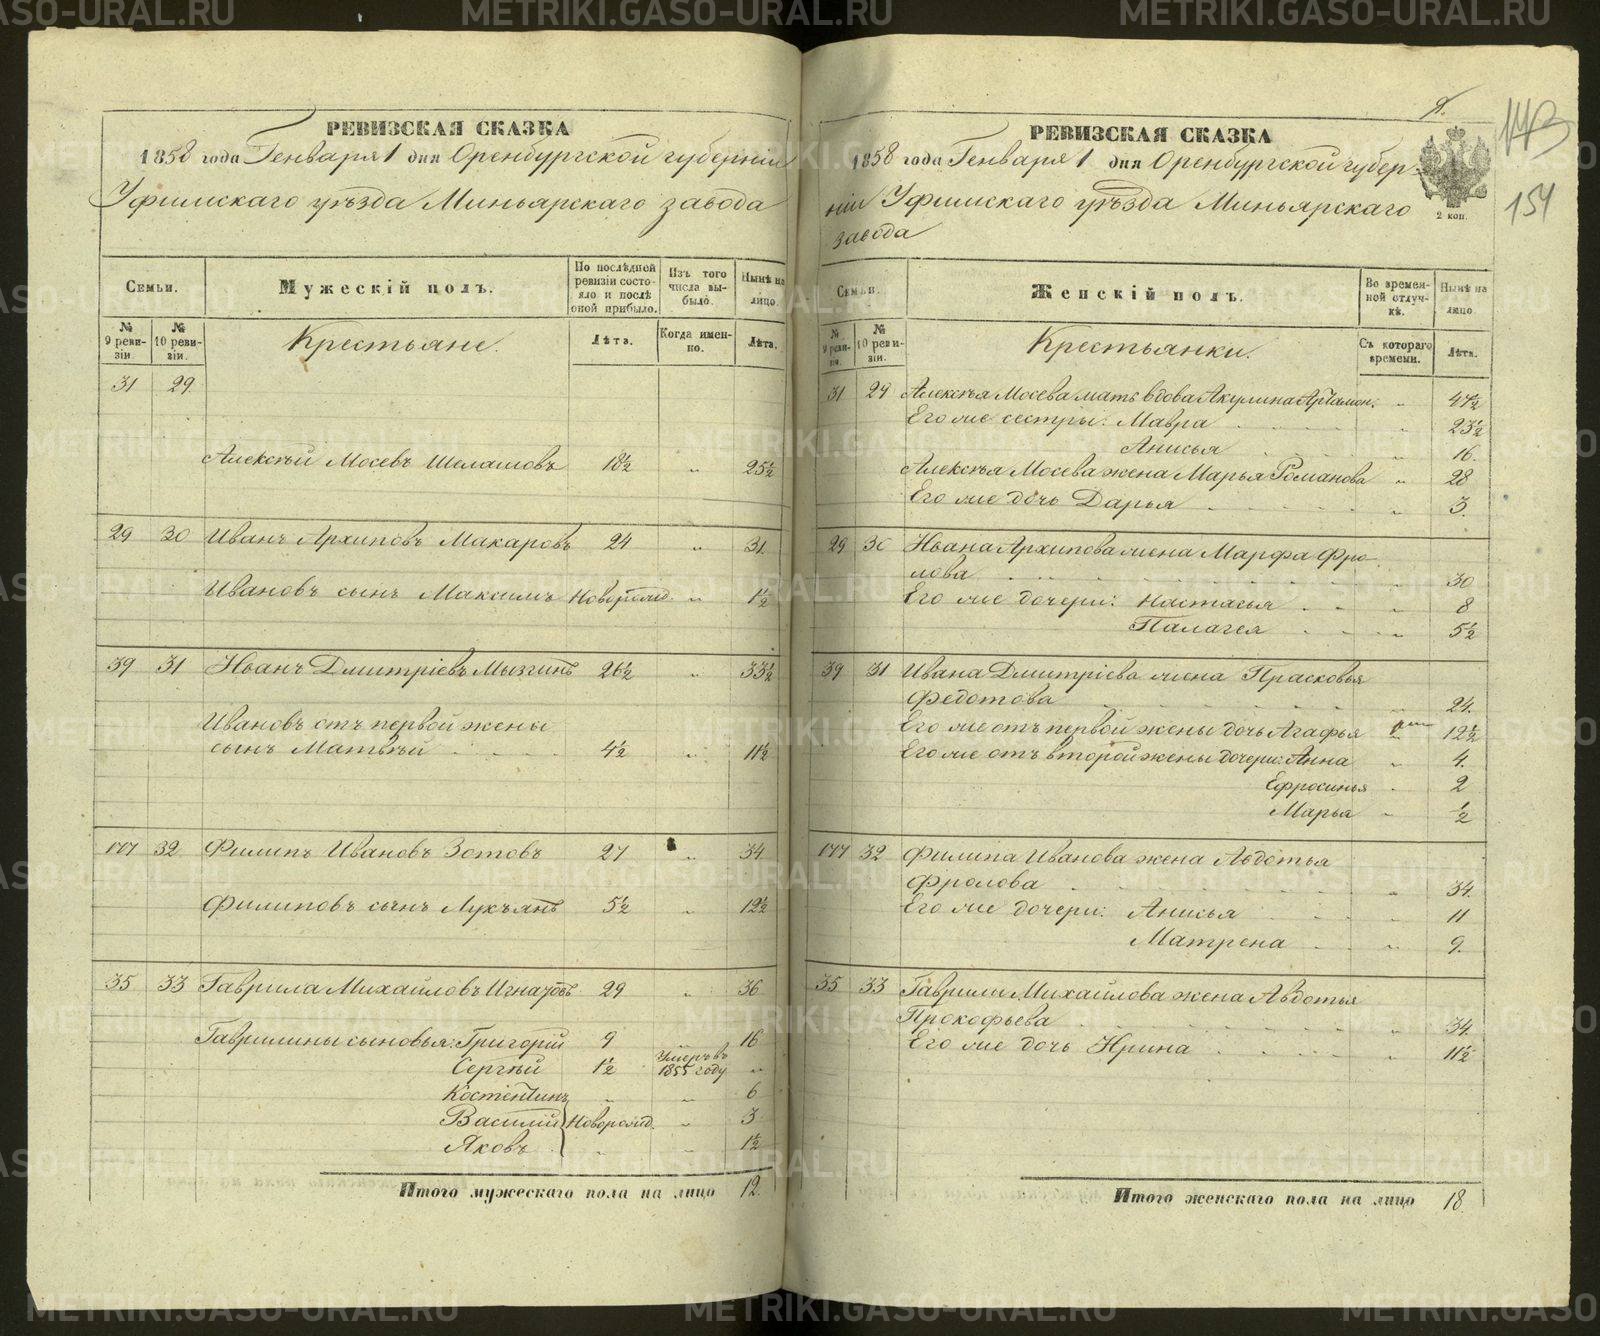 РЕВИЗСКАЯ СКАЗКА
1858 года Генваря 1 дня Оренбургской губернiи
Уфимскаго уѣзда Миньярскаго завода
Семьи.
Мужескiй полъ.
По послѣдней ревизiи состояло и послѣ оной прибыло.
Изъ того числа выбыло.
Нынѣ на лицо.
№ 9 ревизiи.
№ 10 ревизiи.
Крестьяне.
Лѣта.
Когда именно.
Лѣта.
31 29
Алексѣй Мосевъ 18½ „ 25½
29 30 Иванъ Архиповъ Макаровъ 24 „ 31
Ивановъ сынъ Максимъ Новорожд. „ 1½
39 31 Иванъ Дмитрiевъ Мызгинъ 26½ „ 33½
Ивановъ отъ первой жены
сынъ Матвѣй 4½ „ 11½
177 32 Филипъ Ивановъ Зотовъ 27 „ 34
Филиповъ сынъ Лукъянъ 5½ „ 12½
35 33 Гаврила Михайловъ Игнатовъ 29 „ 36
Гаврилины сыновья: Григорiй 9 „ 16
Сергѣй 1½ Умеръ въ 1855 году „
Костентинъ „ „ 6
Василiй Новорожд. „ 3
Яковъ „ „ 1½
Итого мужескаго пола на лицо 12.
143
154
2 коп.
РЕВИЗСКАЯ СКАЗКА
1858 года Генваря 1 дня Оренбургской губер-
нiи Уфимскаго уѣзда Миньярскаго
завода
Семьи.
Женскiй полъ.
Во временной отлучкѣ.
Нынѣ на лицо
№ 9 ревизiи.
№ 10 ревизiи.
Крестьянки.
Съ котораго времени.
Лѣта.
31 29 Алексѣя Мосева мать вдова Акулина Артамон. „ 47½
Его же сестры: Мавра „ 23½
Анисья „ 16.
Алексѣя Мосева жена Марья Романова „ 28
Его же дочь Дарья „ 3.
29 30 Ивана Архипова жена Марфа Фро-
лова „ 30
Его же дочери: Настасья „ 8
Палагея „ 5½
39 31 Ивана Дмитрiева жена Прасковья
Федотова „ 24.
Его же отъ первой жены дочь Агафья „ 12½
Его же отъ второй жены дочери: Анна „ 4.
Ефросинья „ 2
Марья „ ½
177 32 Филипа Иванова жена Авдотья
Фролова „ 34.
Его же дочери: Анисья „ 11
Матрена „ 9.
35 33 Гаврилы Михайлова жена Авдотья
Прокофьева „ 34.
Его же дочь Ирина „ 11½
Итого женскаго пола на лицо 18.
METRIKI.GASO-URAL.RU